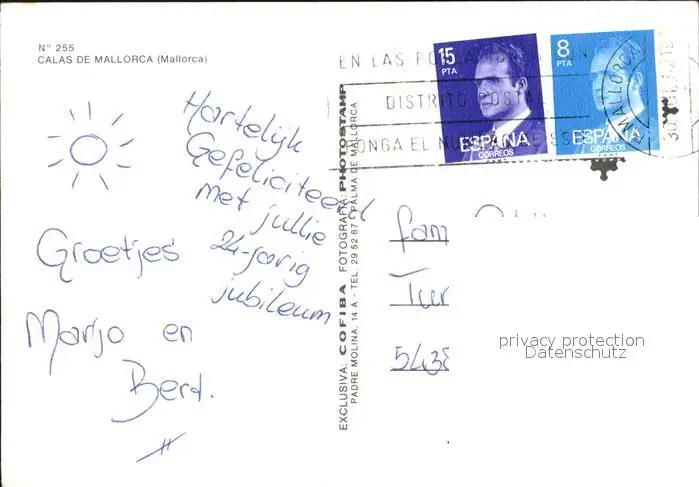 Nº 255
CALAS DE MALLORCA (Mallorca)
Hartelijk
Gefeliciteerd
met jullie
24-jarig
jubileum
Groetjes
Marjo en
Berd.
EXCLUSIVA: COFIBA FOTOGRAFIA: PHOTOSTAMP
PADRE MOLINA, 14 A - TEL. 29 52 87 PALMA DE MALLORCA
EN LAS
DISTRITO POSTAL
PONGA EL
15
PTA
ESPAÑA
CORREOS
8
PTA
ESPAÑA
CORREOS
MALLORCA
fam
Tur
5438
privacy protection
Datenschutz